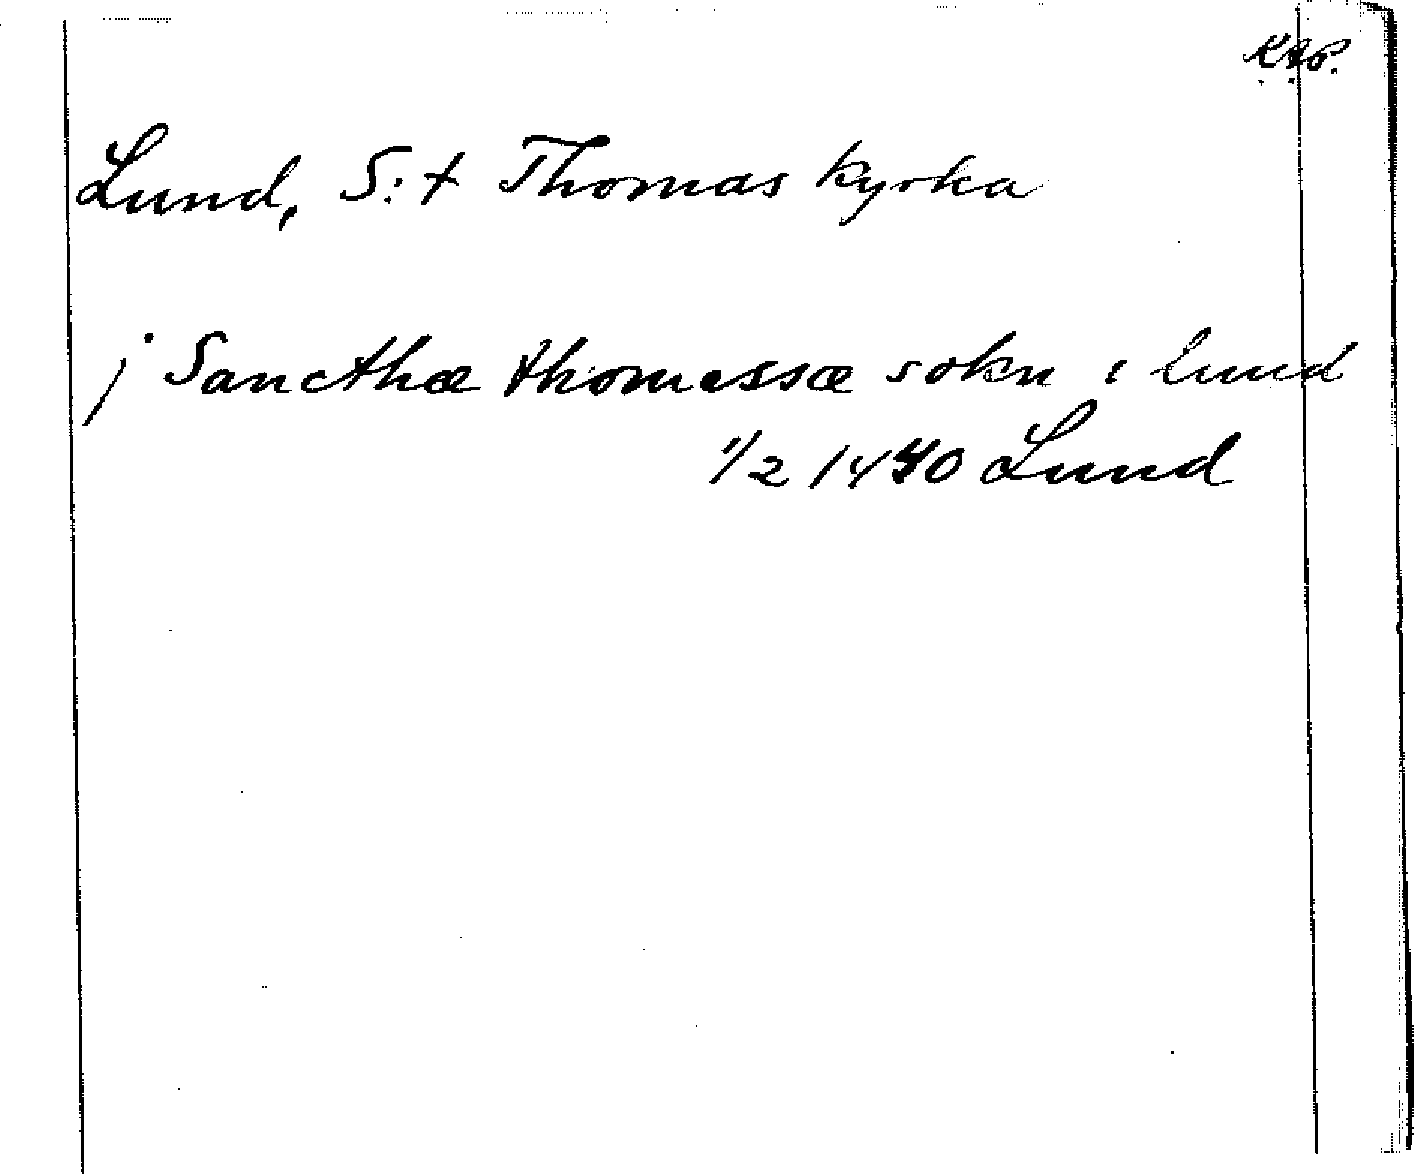 Lund, S:t Thomas kyrka
j Sancthæ thomessæ sokn i lund
1/2 1440 Lund